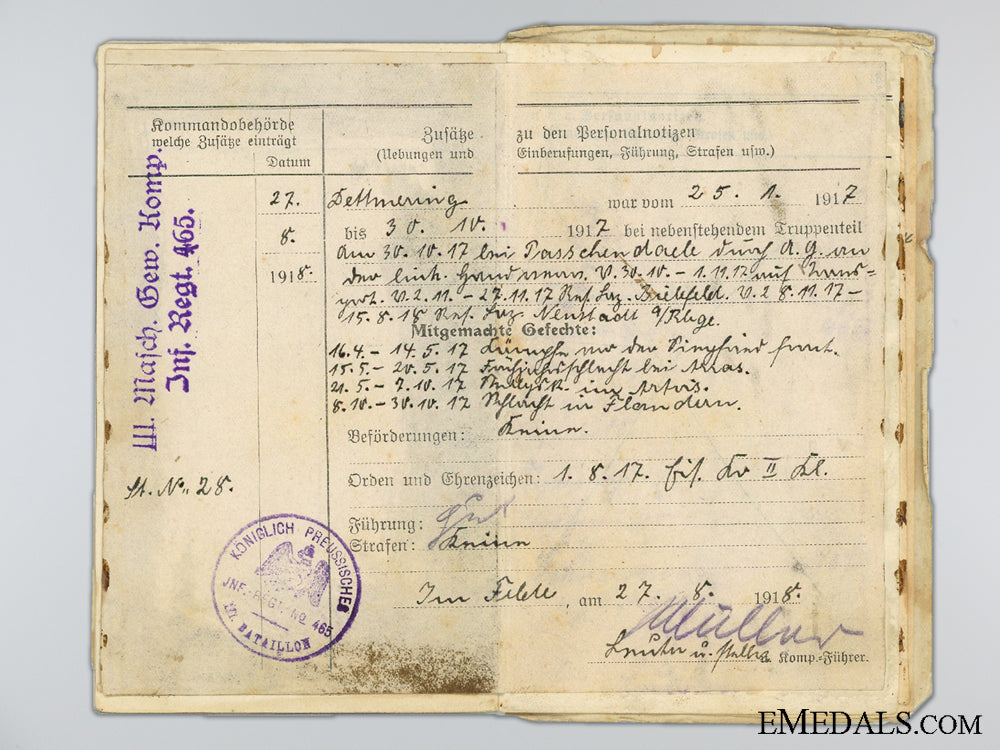 Kommandobehörde
welche Zusätze einträgt
Datum
Zusätze zu den Personalnotizen
(Uebungen und Einberufungen, Führung, Strafen usw.)
III. Masch. Gew. Komp.
Inf. Regt. 465.
27.
8.
1918.
St. No. 28.
Dettmering war vom 25. 1. 1917
bis 30. 10. 1917 bei nebenstehendem Truppenteil
Am 30.10.17 bei Passchendaele durch A.G. an
der link. Hand verw. V. 30.10. - 1.11.17 auf Trans-
port. V. 2.11. - 27.11.17 Res. Laz. Bielefeld. V. 28.11.17 -
15.8.18 Res. Laz. Neustadt a/Rbge.
Mitgemachte Gefechte:
16.4. - 14.5.17 Kämpfe vor der Siegfried front.
15.5. - 20.5.17 Frühjahrsschlacht bei Arras.
21.5 - 7.10.17 im Artois.
8.10 - 30.10.17 Schlacht in Flandern.
Beförderungen: Keine.
Orden und Ehrenzeichen: 1.8.17. Eis. Kr II Kl.
Führung: Gut
Strafen: Keine
Im Felde, am 27. 8. 1918.
Müller
Leutn u. Komp.-Führer.
KÖNIGLICH PREUSSISCHES
JNF.-REGT. No 465
BATAILLON
EMEDALS.COM